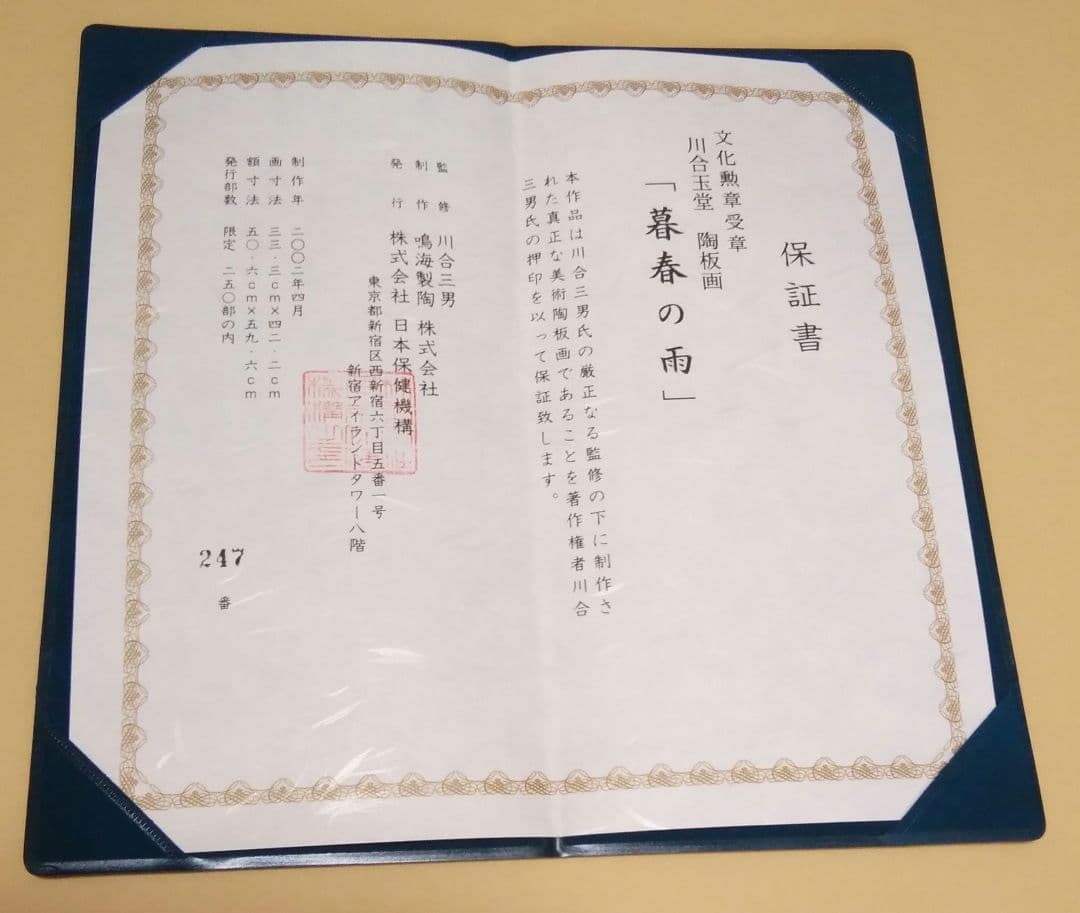 保証書
文化勲章受章
川合玉堂 陶板画
「暮春の雨」
本作品は川合三男氏の厳正なる監修の下に制作さ
れた真正な美術陶板画であることを著作権者川合
三男氏の押印を以って保証致します。
監修 川合三男
制作 鳴海製陶株式会社
発行 株式会社 日本保健機構
東京都新宿区西新宿六丁目五番一号
新宿アイランドタワー八階
制作年 二〇〇二年四月
画寸法 三三・三cm×四二・二cm
額寸法 五〇・六cm×五九・六cm
発行部数 限定 二五〇部の内
247 番